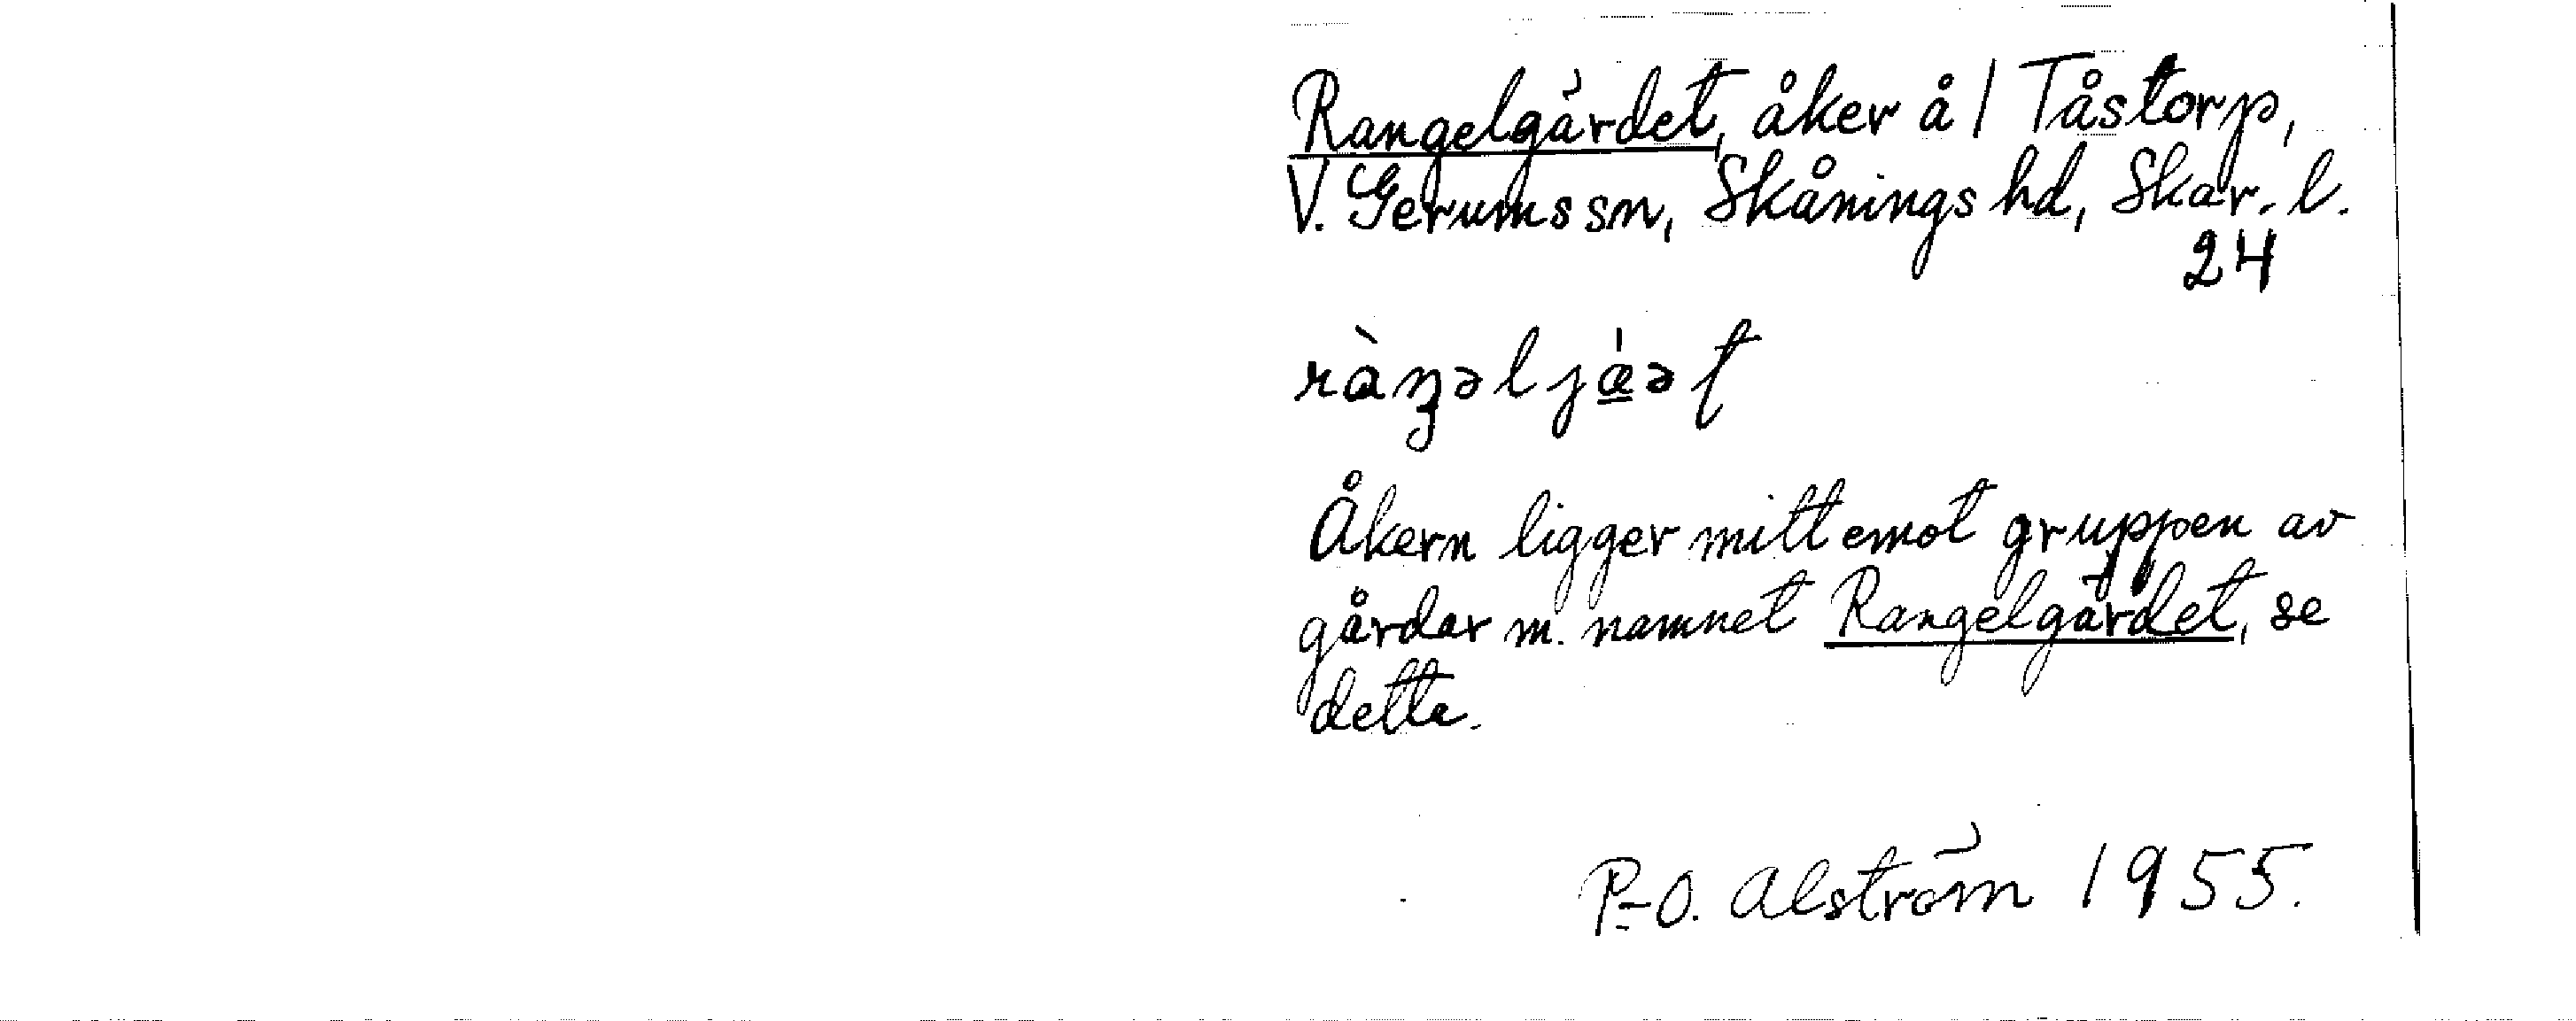 Rangelgärdet, åker å 1 Tåstorp,
V. Gerums sn, Skånings hd, Skar. l.
24
ràŋəljǽət
Åkern ligger mitt emot gruppen av
gårdar m. namnet Rangelgärdet, se
detta.
P-O. Alström 1955.